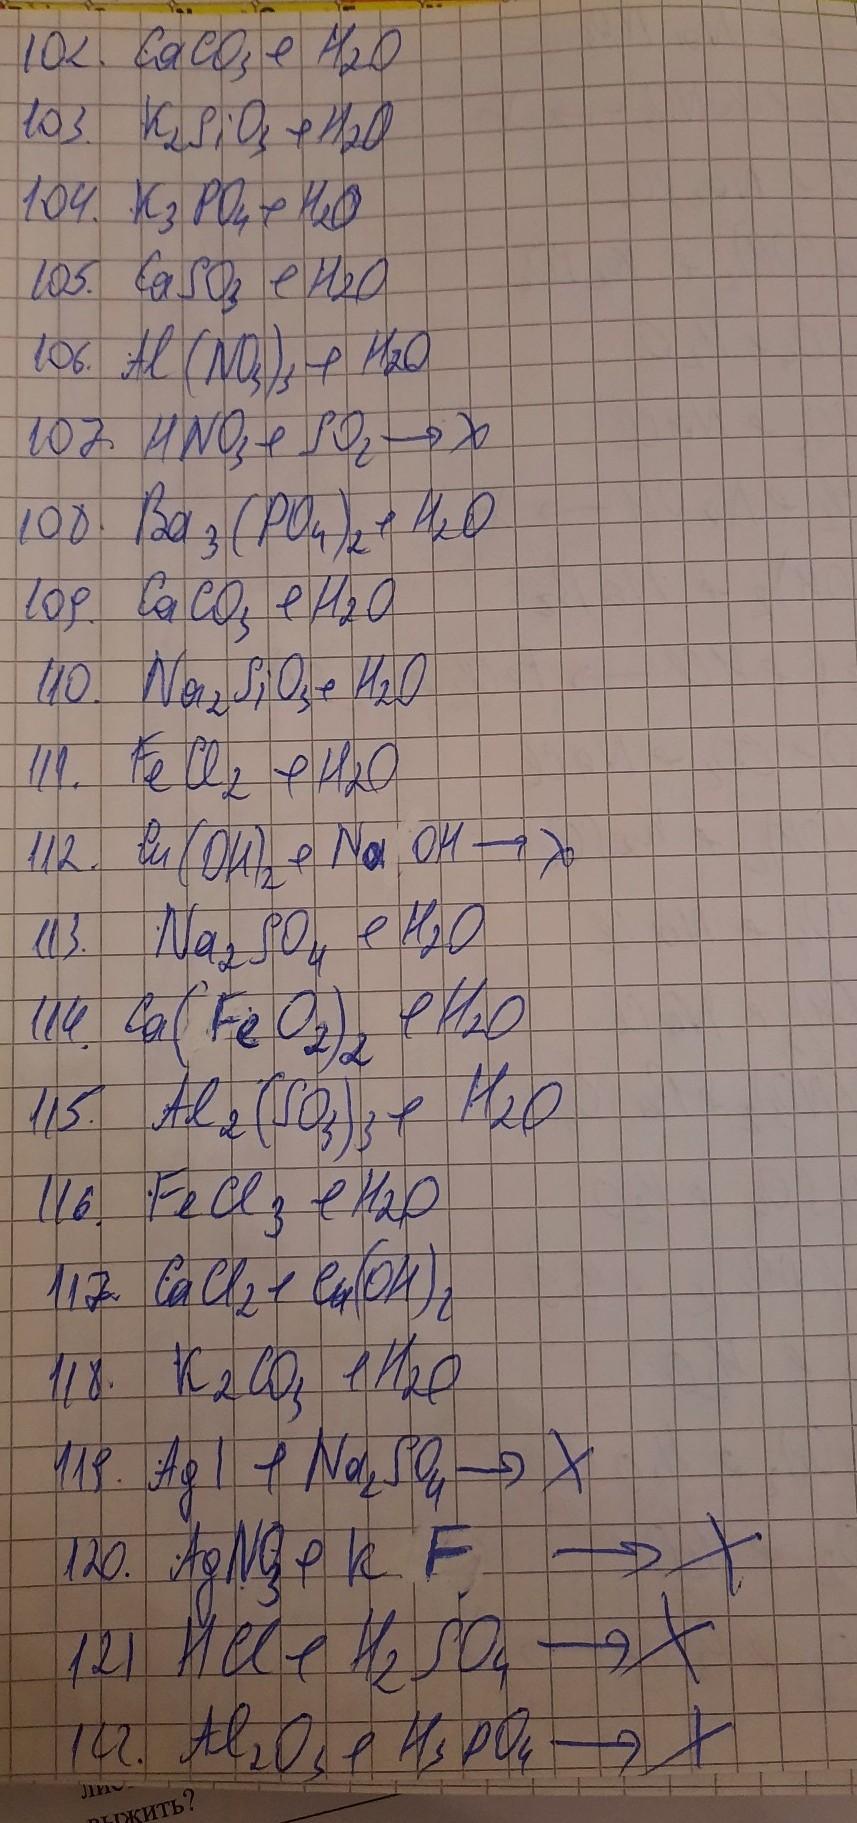 102. CaCO3 + H2O
103. K2SiO3 + H2O
104. K3PO4 + H2O
105. CaSO3 + H2O
106. Al(NO3)3 + H2O
107. HNO3 + SO2 → X
108. Ba3(PO4)2 + H2O
109. CaCO3 + H2O
110. Na2SiO3 + H2O
111. FeCl2 + H2O
112. Cu(OH)2 + NaOH → X
113. Na2SO4 + H2O
114. Ca(FeO2)2 + H2O
115. Al2(SO3)3 + H2O
116. FeCl3 + H2O
117. CaCl2 + Cu(OH)2
118. K2CO3 + H2O
119. AgI + Na2SO4 → X
120. AgNO3 + KF → X
121 HCl + H2SO4 → X
122. Al2O3 + H3PO4 → X
выжить?